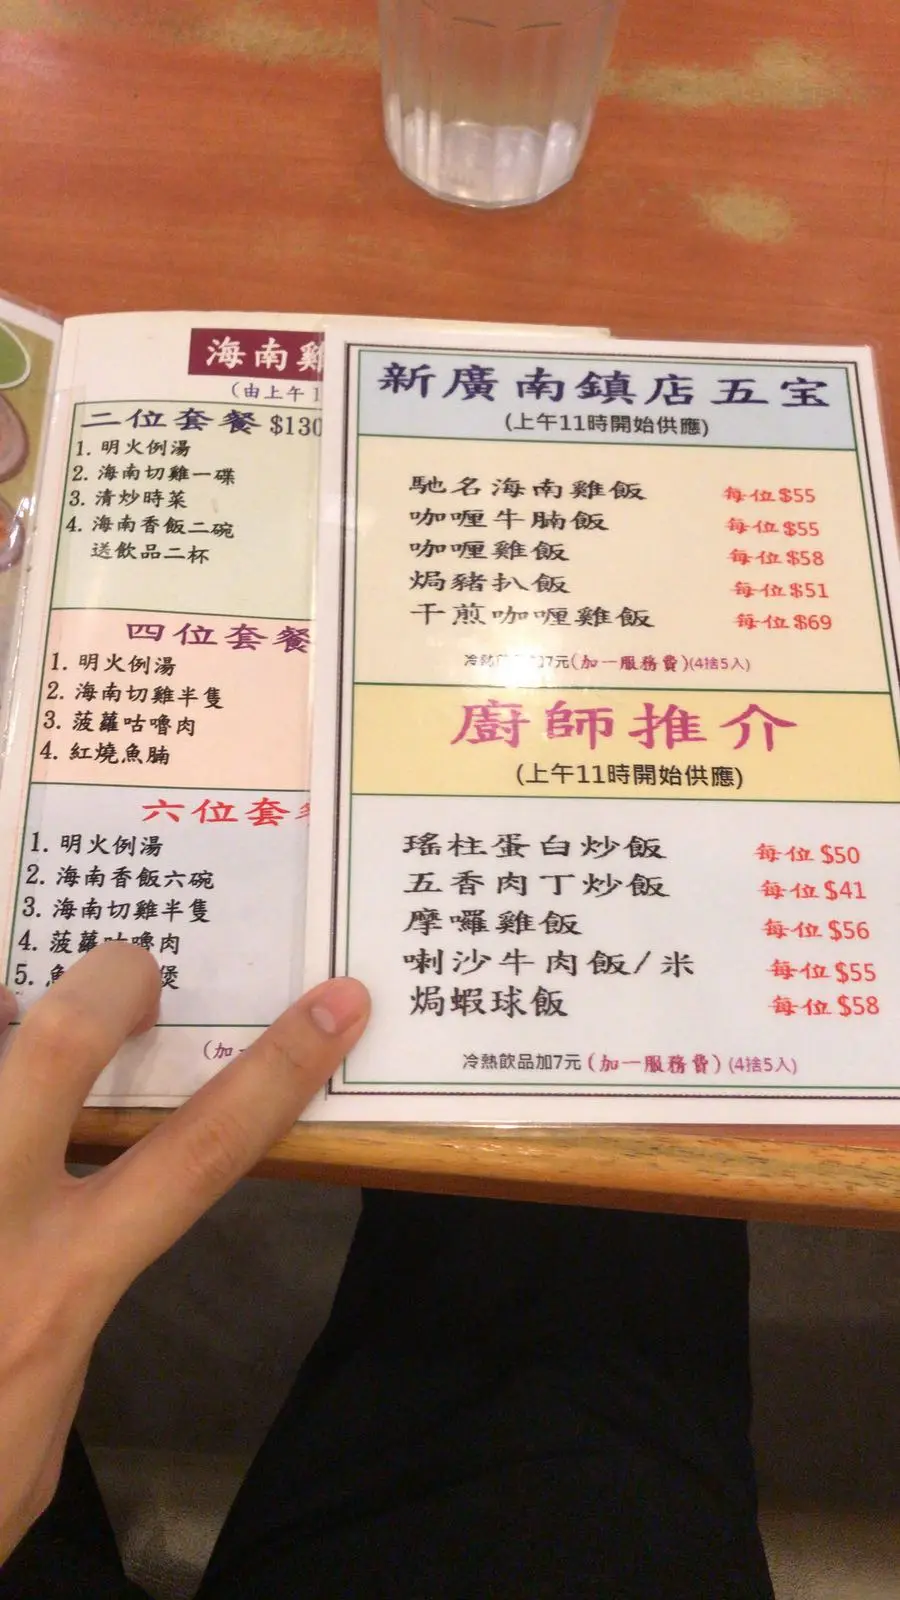 海南雞
(由上午1
二位套餐 $130
1. 明火例湯
2. 海南切雞一碟
3. 清炒時菜
4. 海南香飯二碗
送飲品二杯
四位套餐
1. 明火例湯
2. 海南切雞半隻
3. 菠蘿咕嚕肉
4. 紅燒魚腩
六位套
1. 明火例湯
2. 海南香飯六碗
3. 海南切雞半隻
4. 菠蘿咕嚕肉
5. 魚 煲
(加一
新廣南鎮店五宝
(上午11時開始供應)
馳名海南雞飯 每位$55
咖喱牛腩飯 每位$55
咖喱雞飯 每位$58
焗豬扒飯 每位$51
干煎咖喱雞飯 每位$69
冷熱 加7元(加一服務費)(4捨5入)
廚師推介
(上午11時開始供應)
瑤柱蛋白炒飯 每位$50
五香肉丁炒飯 每位$41
摩囉雞飯 每位$56
喇沙牛肉飯/米 每位$55
焗蝦球飯 每位$58
冷熱飲品加7元(加一服務費)(4捨5入)